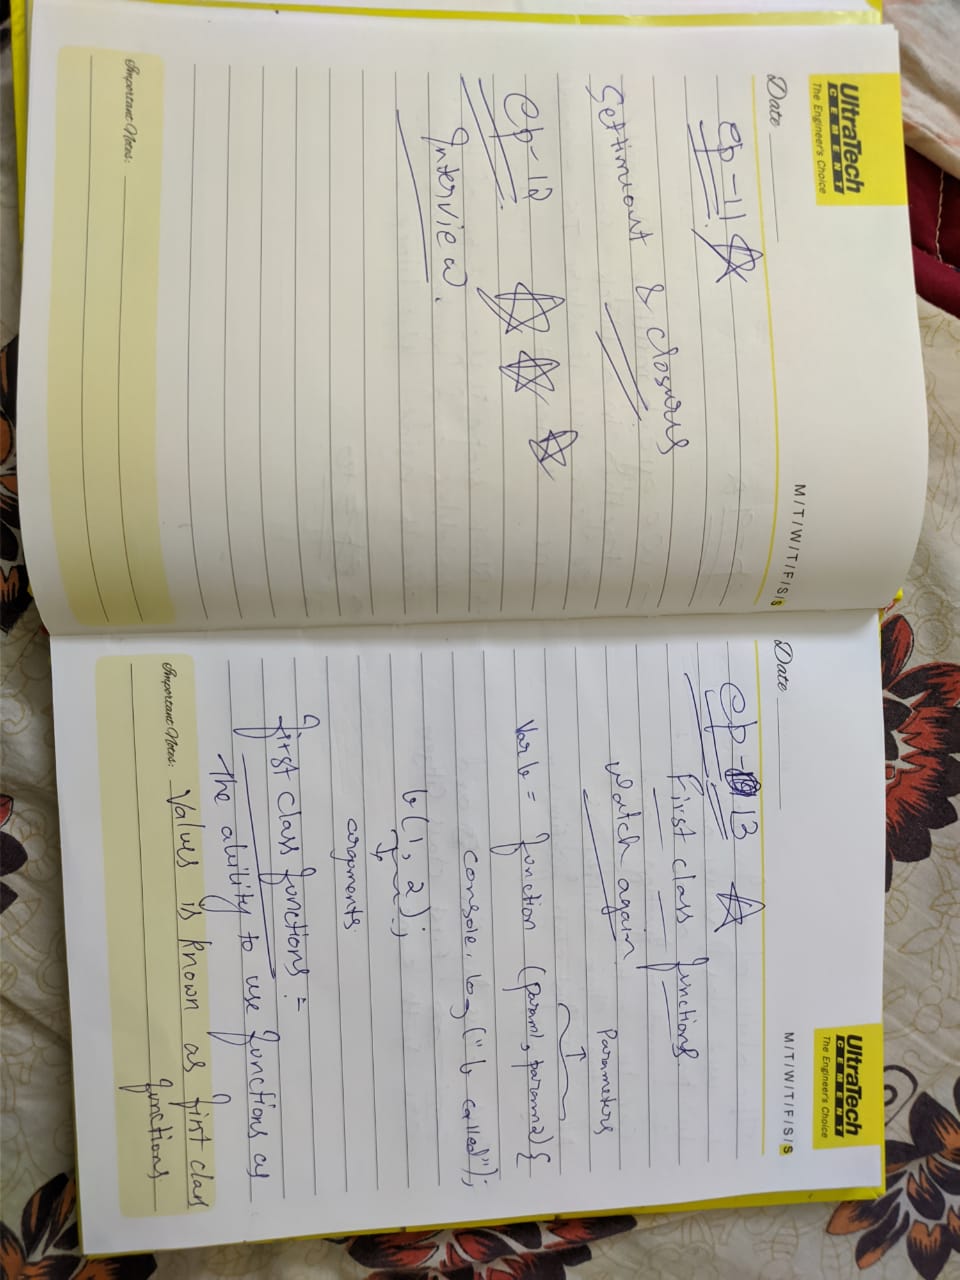 UltraTech
CEMENT
The Engineer's Choice
Date
M/T/W/T/F/S/S
Ep-11
Settimeout & closures
Ep-12
Interview.
Important Notes:
UltraTech
CEMENT
The Engineer's Choice
Date
M/T/W/T/F/S/S
Ep-13
First class functions.
Watch again
Parameters
Var b = function (param1, param2) {
console.log("b called");
b(1, 2);
arguments
First class functions:=
The ability to use functions as
Important Notes: Values is known as first class
functions